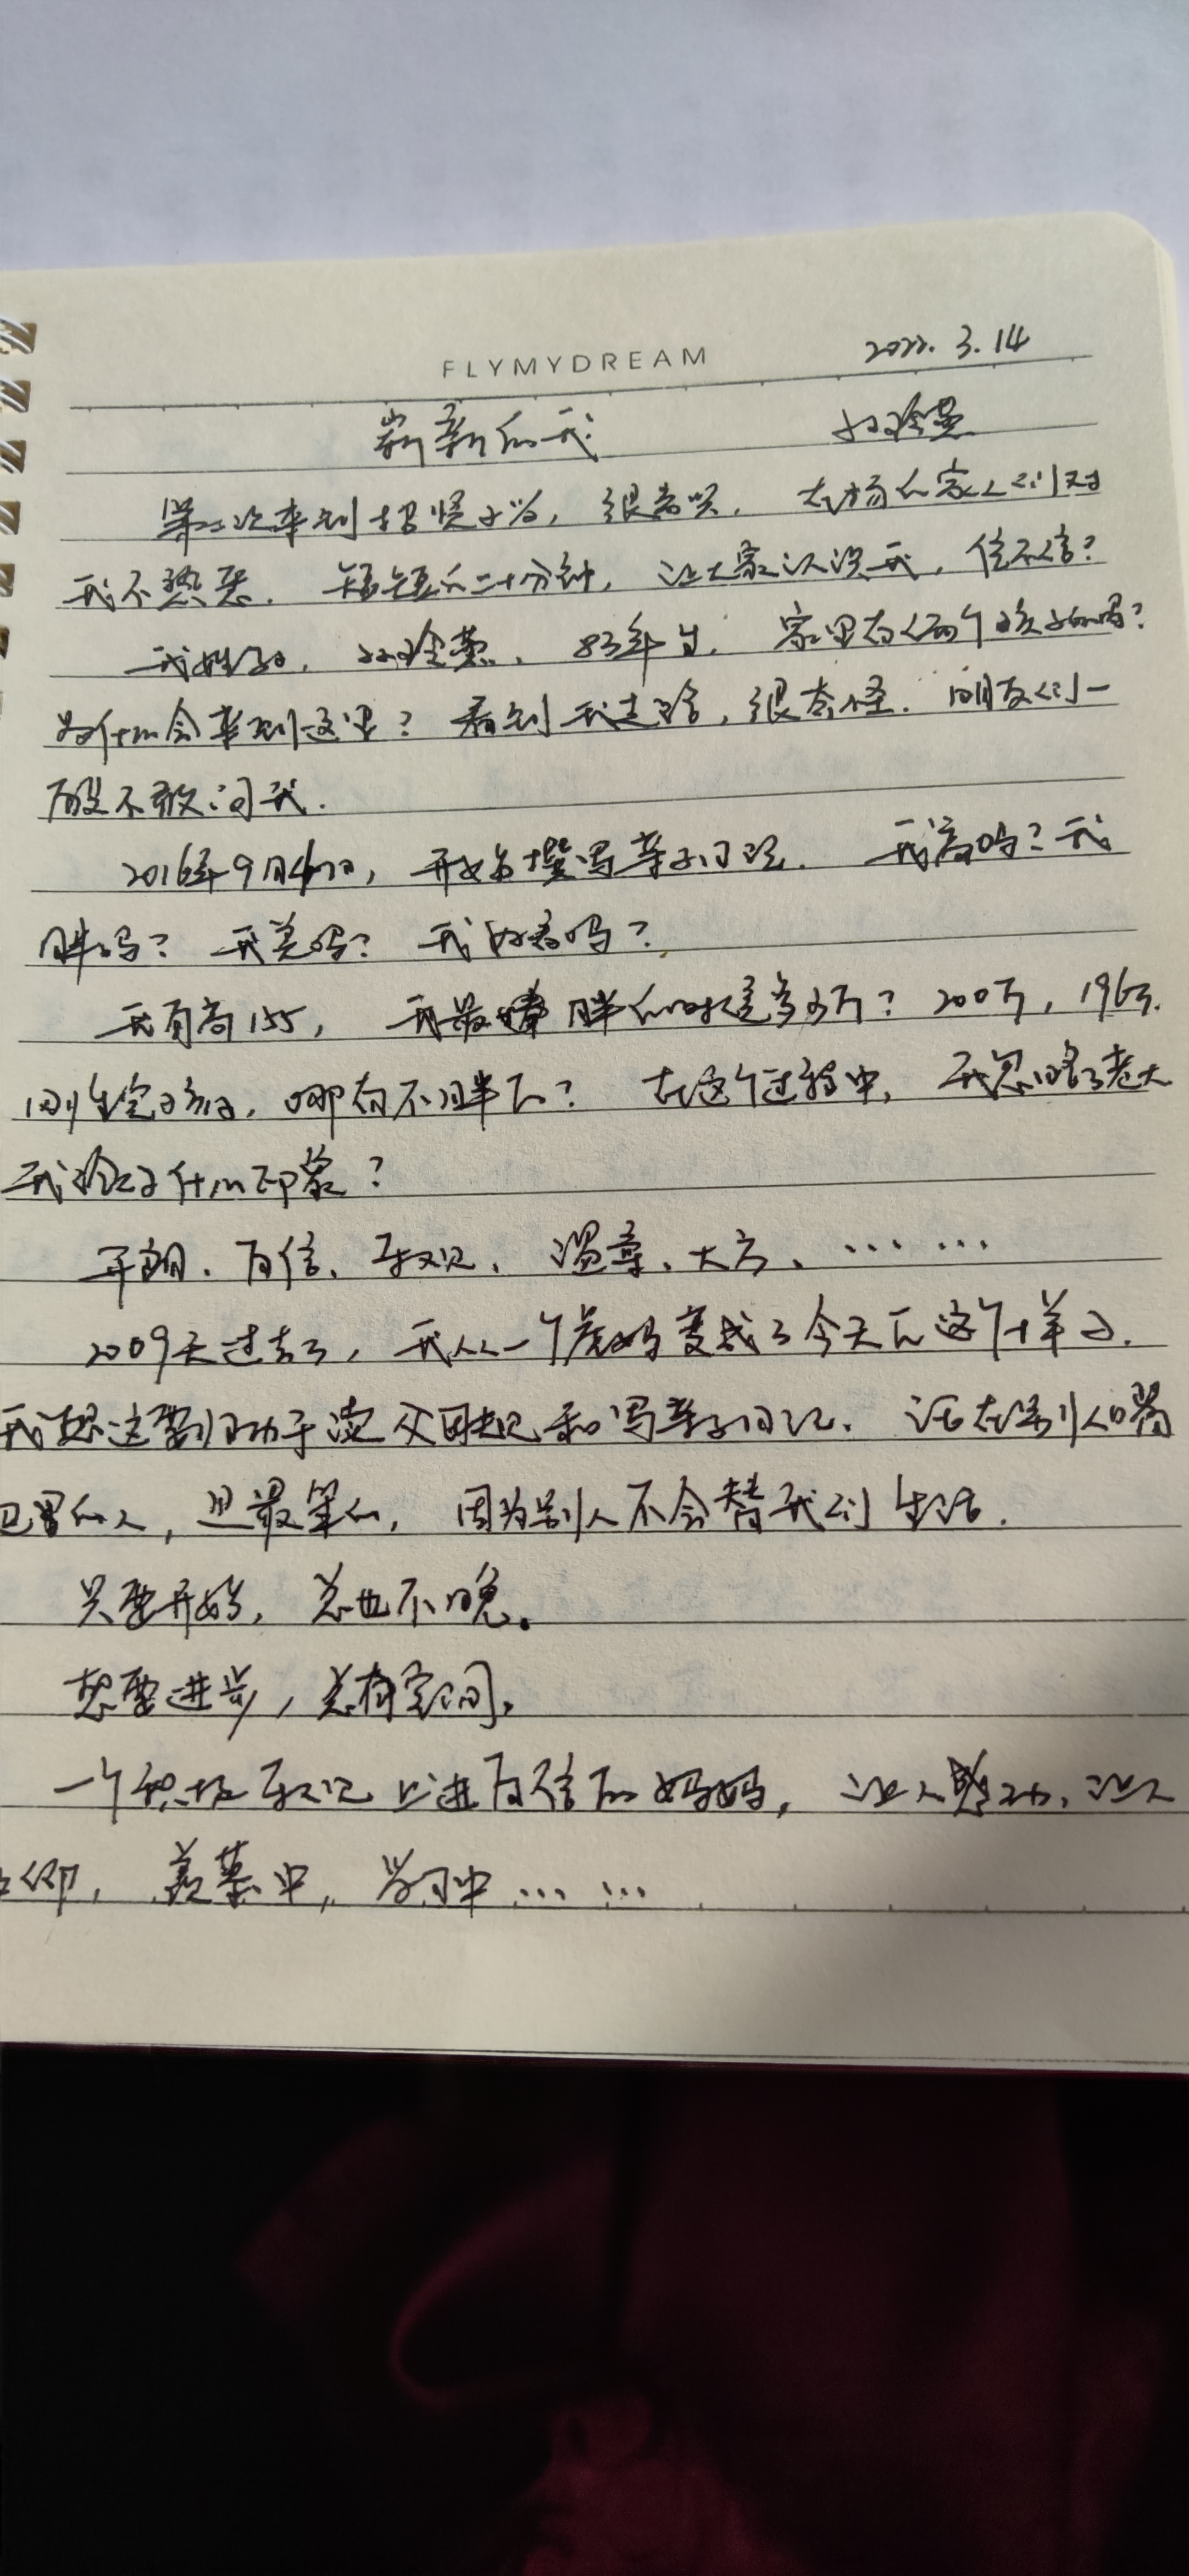 FLYMYDREAM 2022.3.14
崭新的我 孙玲燕
第二次来到招贤小学,很高兴,在场的家人们对
我不熟悉,短短的二十分钟,让大家认识我,信不信?
我姓孙,孙玲燕,83年生,家里有俩个孩子的吗?
为什么会来到这里?看到我走路,很奇怪.朋友们一
般不敢问我.
2016年9月 日,开始撰写亲子日记.我高吗?我
胖吗?我美吗?我好看吗?
我身高155,我最胖的时是多少斤?200斤,196斤.
刚生完孩子,哪有不胖的?在这个过程中,我忽略了老大
我给了什么印象?
开朗、自信、乐观、温柔、大方、……
2009天过去了,我从一个虎妈变成了今天的这个样子.
我想这要归功于读父母规和写亲子日记.活在别人嘴
巴里的人,是最笨的,因为别人不会替我们生活.
只要开始,总也不晚。
想要进步,总有空间。
一个积极乐观上进自信的妈妈,让人感动,让人
仰,羡慕中,学习中……